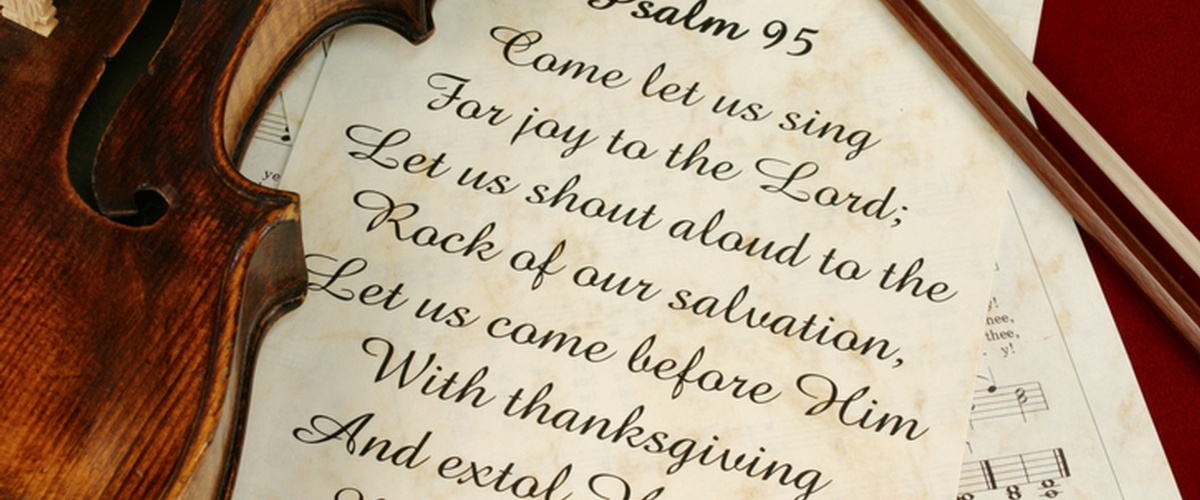 Psalm 95
Come let us sing
For joy to the Lord;
Let us shout aloud to the
Rock of our salvation,
Let us come before Him
With thanksgiving
And extol
ye
thee,
y!